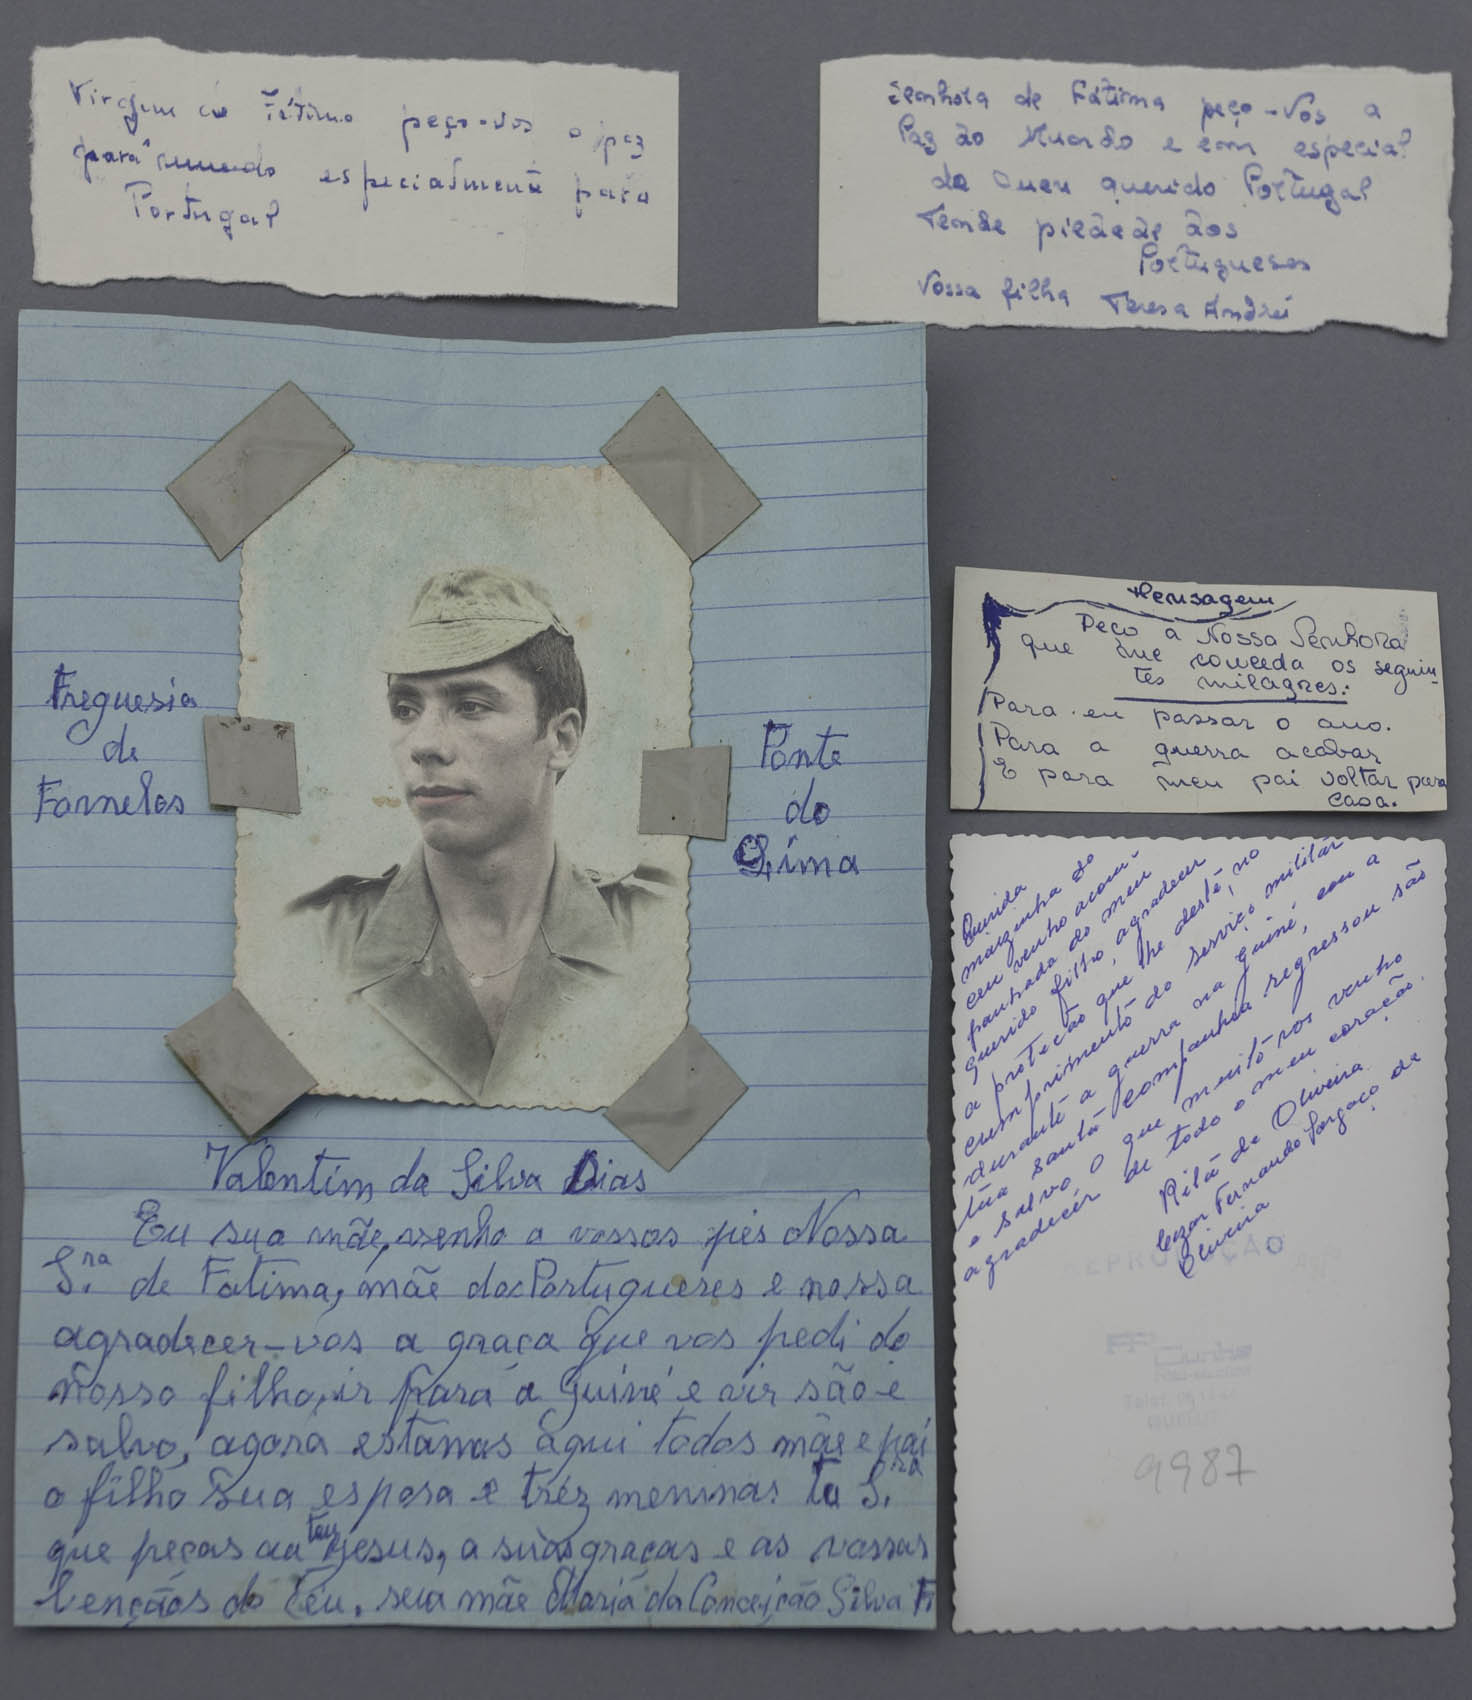 Virgem de Fátima peço-vos a paz
para o mundo especialmente para
Portugal
Senhora de Fátima peço-Vos a
Paz ão Mundo e em especial
do meu querido Portugal
Tende piedade ãos
Portugueses
Vossa filha Teresa André
Freguesia
de
Fornelos
Ponte
do
Lima
Valentim da Silva Dias
Eu sua mãe, venho a vossos pés Nossa
S.ra de Fatima, mãe dos Portugueses e nossa
agradecer-vos a graça que vos pedi do
nosso filho, ir para a Guiné e vir são e
salvo, agora estamos aqui todos mãe e pai
o filho sua esposa e tréz meninas. Tu S.ra
que peças ao teu Jesus, a suas graças e as vossas
bençãos do Céu. seu mãe Maria da Conceição Silva
Mensagem
Peço a Nossa Senhora
que me conceda os seguin-
tes milagres:
Para eu passar o ano.
Para a guerra acabar
E para meu pai voltar para
casa.
Querida
mãizinha do
ceu venho acom-
panhada do meu
querido filho, agradecer
a proteção que lhe deste, no
cumprimento do serviço militar
durante a guerra na guiné, com a
tua santa companhia regressou são
e salvo O que muito-vos venho
agradecer de todo o meu coração.
Rita de Oliveira
Cezar Fernando Sargaço de
Oliveira
REPRODUÇÃO
Cunha
9987